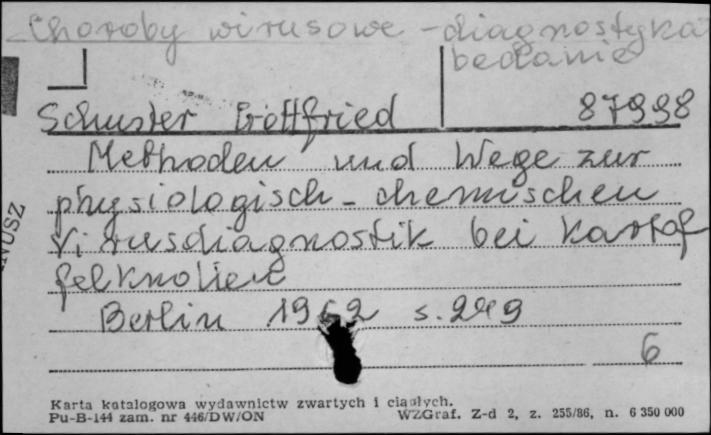 Choroby wirusowe - diagnostyka
badanie
Schuster Gottfried 87998
Methoden und Wege zur
physiologisch-chemischen
Virusdiagnostik bei Kartof
felknollen
Berlin 1962 s. 249
6
Karta katalogowa wydawnictw zwartych i ciągłych.
Pu-B-144 zam. nr 446/DW/ON WZGraf. Z-d 2, z. 255/86, n. 6 350 000